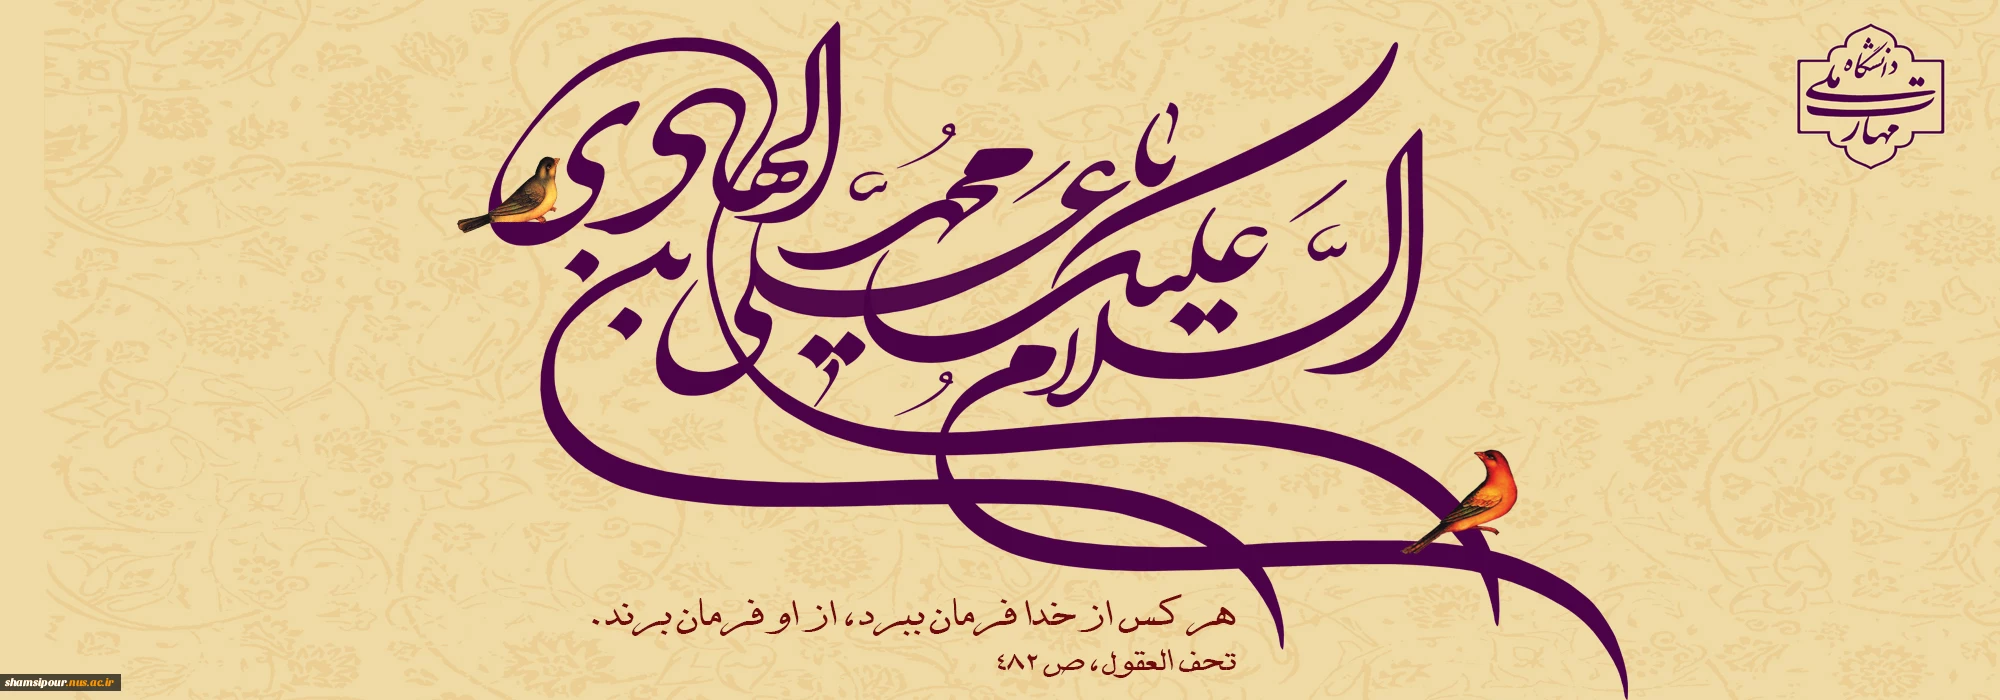 السَّلام علیک یا علی بن محمَّد الهادی
دانشگاه ملی مهارت
هر کس از خدا فرمان ببرد، از او فرمان برند.
تحف العقول، ص ۴۸۲
shamsipour.nus.ac.ir